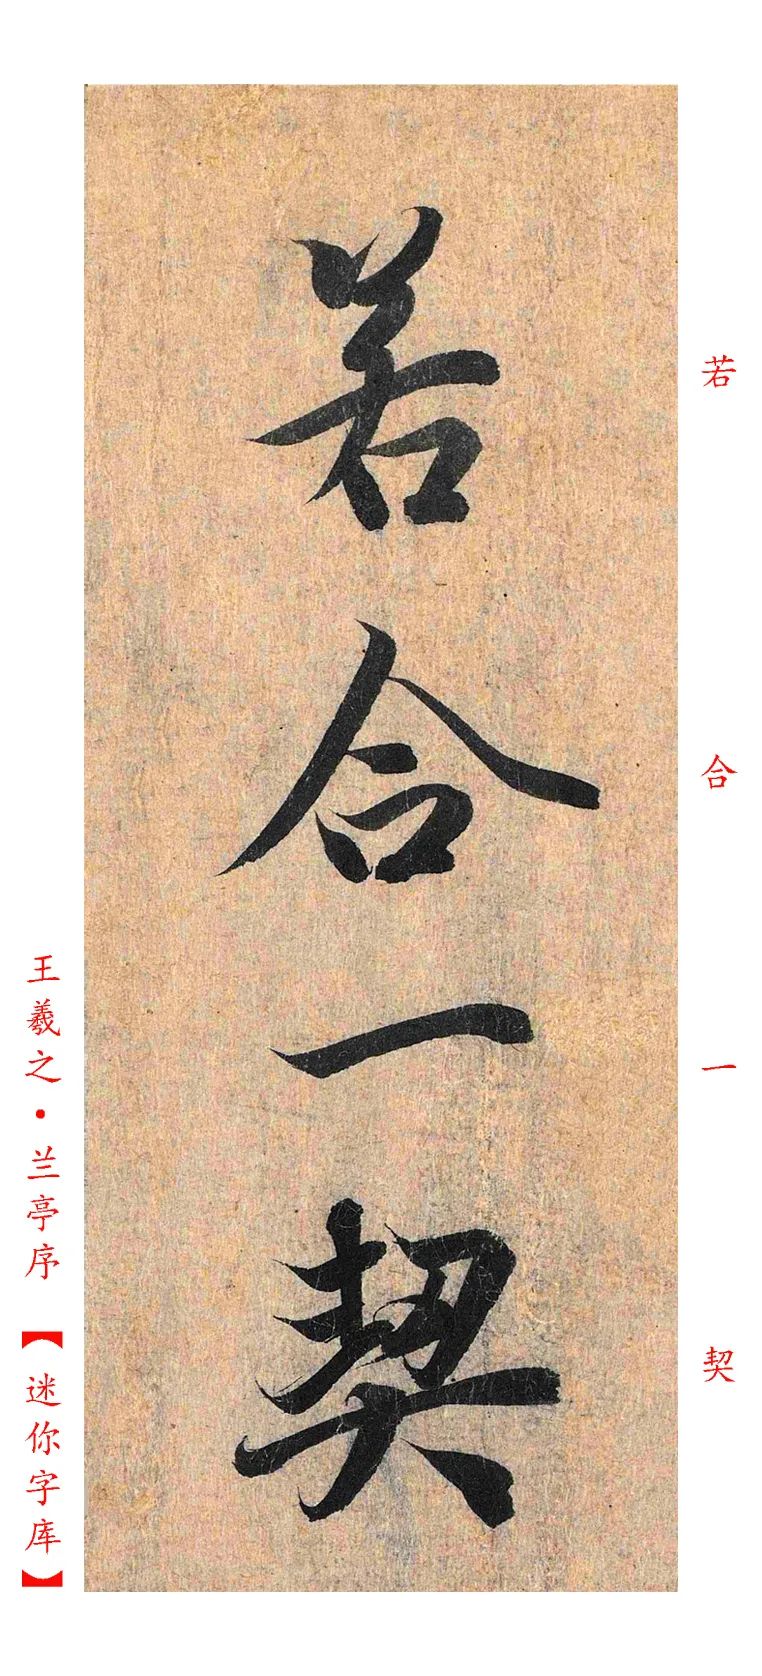 若合一契
若合一契
王羲之·兰亭序【迷你字库】